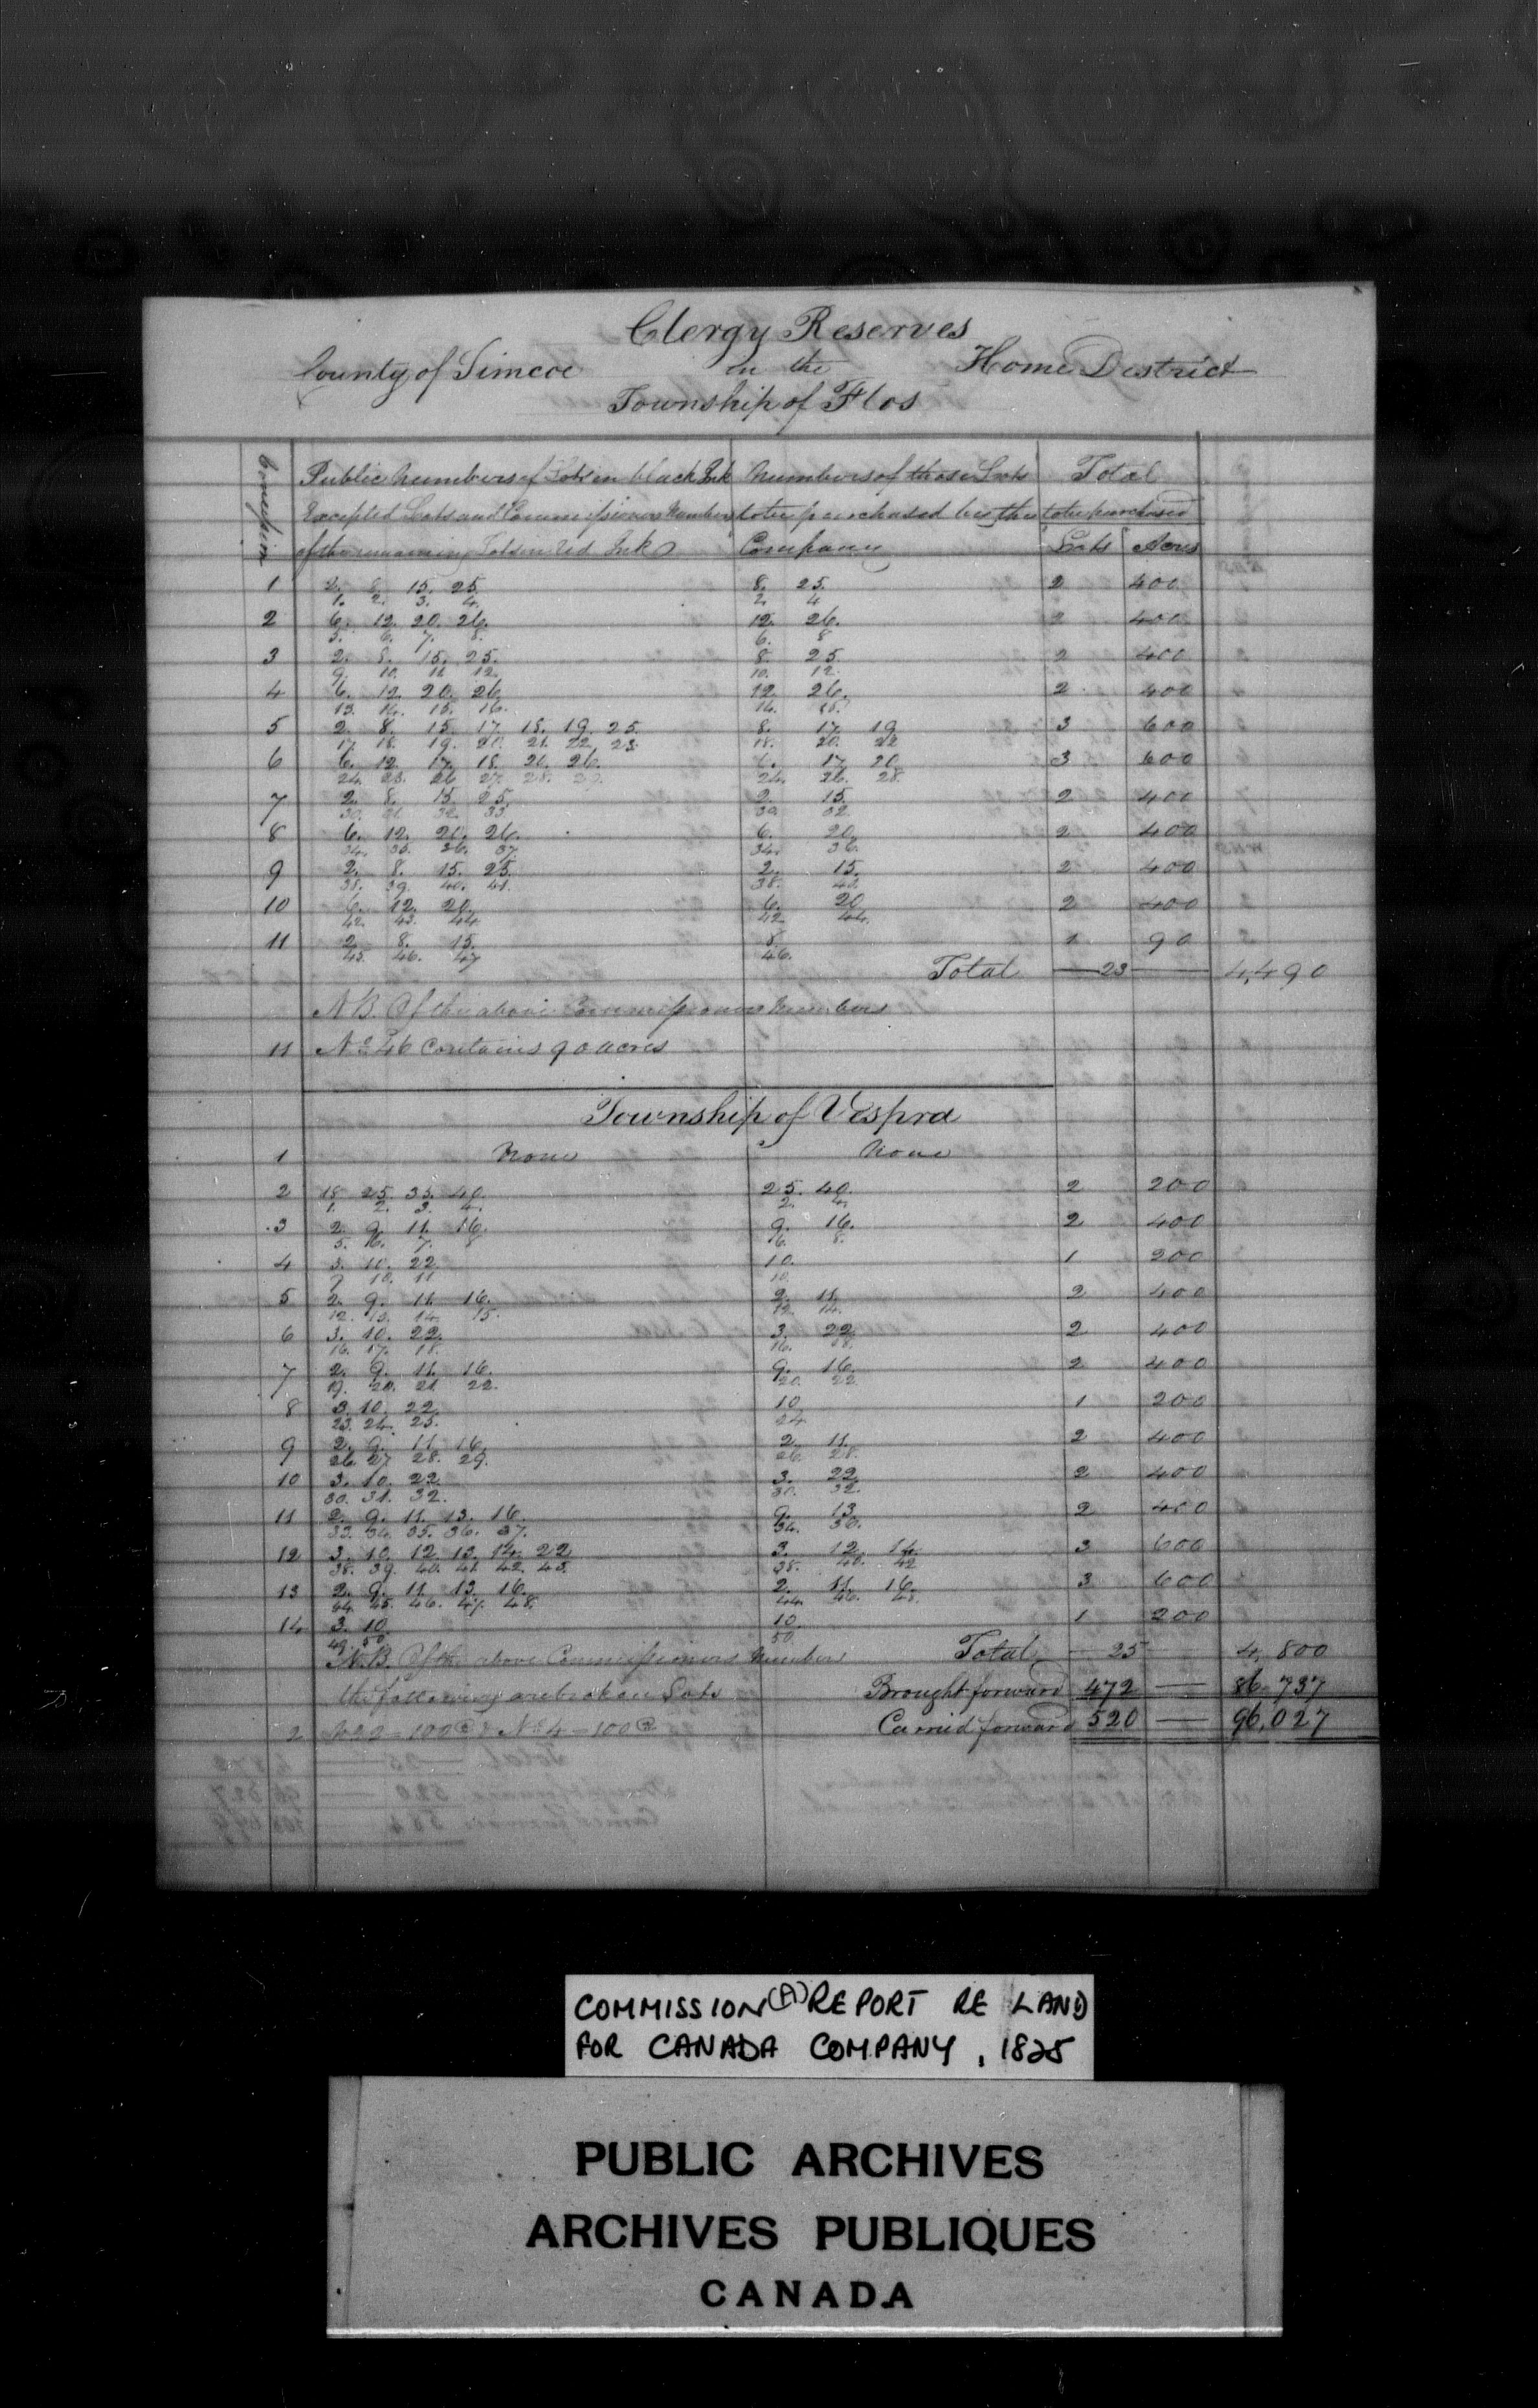 Clergy Reserves
County of Simcoe in the Home District
Township of Flos
Concession
Public numbers of Lots in black Ink Numbers of those Lots Total
Excepted Lots and Commissioners Numbers to be purchased by the to be purchased
of the remaining Lots in red Ink Company Lots Acres
1 2. 8. 15. 25. 8. 25. 2 400
1. 2. 3. 4. 2. 4
2 6. 12. 20. 26. 12. 26. 2 400
5. 6. 7. 8. 6. 8
3 2. 8. 15. 25. 8. 25. 2 400
9. 10. 11. 12. 10. 12.
4 6. 12. 20. 26. 12. 26. 2 400
13. 14. 15. 16. 14.
5 2. 8. 15. 17. 18. 19. 25. 8. 17. 19 3 600
17. 18. 19. 20. 21. 22. 23. 18. 20. 22
6 6. 12. 17. 18. 20. 26. 6. 17. 20. 3 600
24. 25. 26. 27. 28. 29. 24. 26. 28.
7 2. 8. 15. 25. 2. 15. 2 400
30. 31. 32. 33. 30. 32.
8 6. 12. 20. 26. 6. 20. 2 400
34. 35. 36. 37. 34. 36.
9 2. 8. 15. 25. 2. 15. 2 400
38. 39. 40. 41. 38. 40.
10 6. 12. 20. 6. 20 2 400
42. 43. 44 42. 44.
11 2. 8. 15. 8. 1 90
45. 46. 47 46.
Total 23 4,490
N.B. Of the above Commissioners Numbers
11 No 46 Contains 90 acres
Township of Vespra
1 None None
2 18. 25. 33. 40. 25. 40. 2 200
1. 2. 3. 4. 2. 4.
3 2. 9. 11. 16. 9. 16. 2 400
5. 6. 7. 8 6. 8.
4 3. 10. 22. 10. 1 200
9 10. 11 10.
5 2. 9. 11. 16. 2. 11. 2 400
12. 13. 14. 15. 12. 14.
6 3. 10. 22. 3. 22. 2 400
16. 17. 18. 16. 18.
7 2. 9. 11. 16. 9. 16. 2 400
19. 20. 21. 22. 20. 22.
8 3. 10. 22. 10 1 200
23. 24. 25. 24.
9 2. 9. 11. 16. 2. 11. 2 400
26. 27. 28. 29. 26. 28.
10 3. 10. 22. 3. 22. 2 400
30. 31. 32. 30. 32.
11 2. 9. 11. 13. 16. 9. 13 2 400
33. 34. 35. 36. 37. 34. 36.
12 3. 10. 12. 13. 14. 22 3. 12. 14. 3 600
38. 39. 40. 41. 42. 43. 38. 40. 42
13 2. 9. 11. 13. 16. 2. 11. 16. 3 600
44. 45. 46. 47. 48. 44. 46. 48.
14 3. 10. 10. 1 200
49. 50 50
N.B. Of the above Commissioners Numbers Total 25 4,800
the following are broken Lots Brought forward 472 86,737
2 No 2 = 100 & No 4 = 100 Carried forward 520 96,027
COMMISSION (A) REPORT RE LAND
FOR CANADA COMPANY, 1825
PUBLIC ARCHIVES
ARCHIVES PUBLIQUES
CANADA